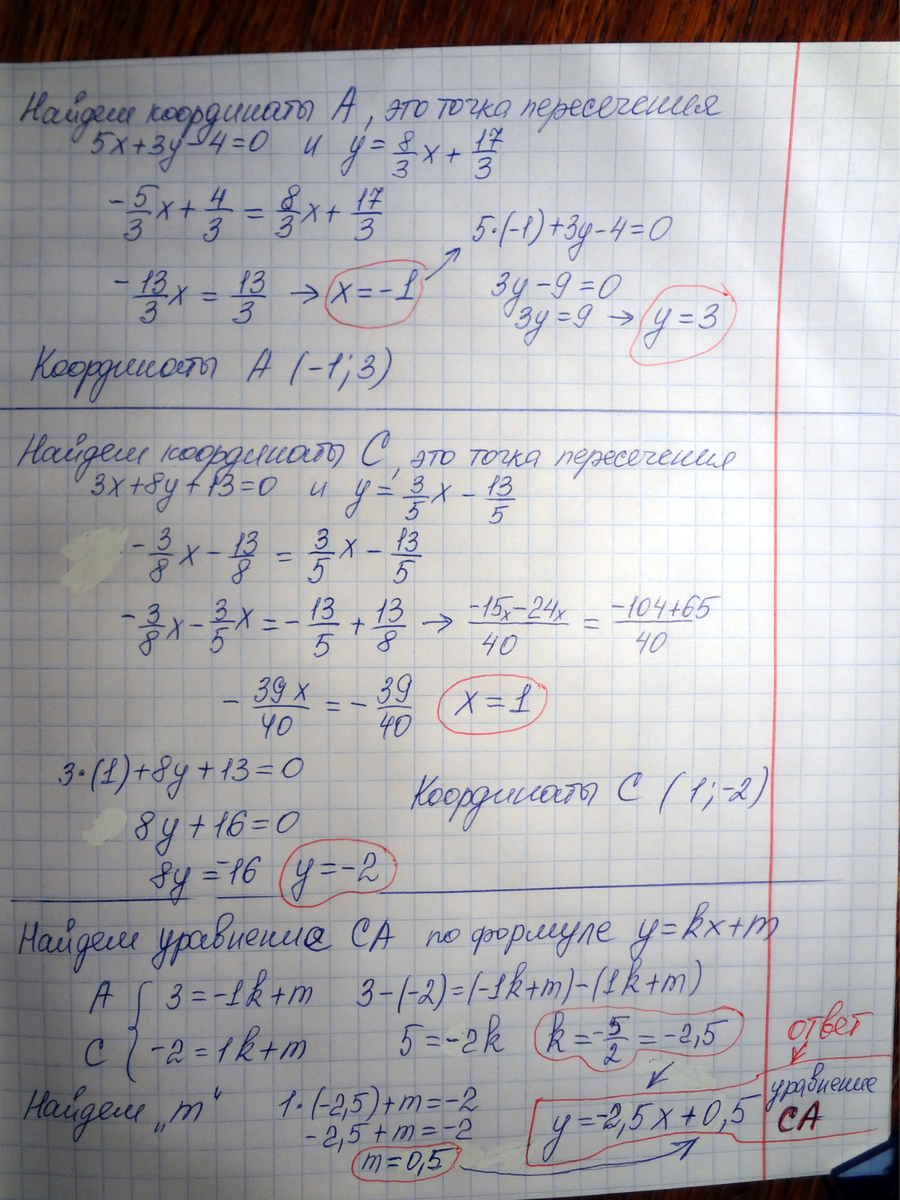 Найдем координаты А, это точка пересечения
5x+3y-4=0 и y=8/3x+17/3
-5/3x+4/3=8/3x+17/3
5·(-1)+3y-4=0
-13/3x=13/3 → x=-1
3y-9=0
3y=9 → y=3
Координаты А (-1;3)
Найдем координаты С, это точка пересечения
3x+8y+13=0 и y=3/5x-13/5
-3/8x-13/8=3/5x-13/5
-3/8x-3/5x=-13/5+13/8 → -15x-24x/40=-104+65/40
-39x/40=-39/40 x=1
3·(1)+8y+13=0
Координаты С (1;-2)
8y+16=0
8y=-16 y=-2
Найдем уравнение СА по формуле y=kx+m
А { 3=-1k+m 3-(-2)=(-1k+m)-(1k+m)
С { -2=1k+m 5=-2k k=-5/2=-2,5
ответ
Найдем „m“ 1·(-2,5)+m=-2
-2,5+m=-2
m=0,5
y=-2,5x+0,5
уравнение
СА